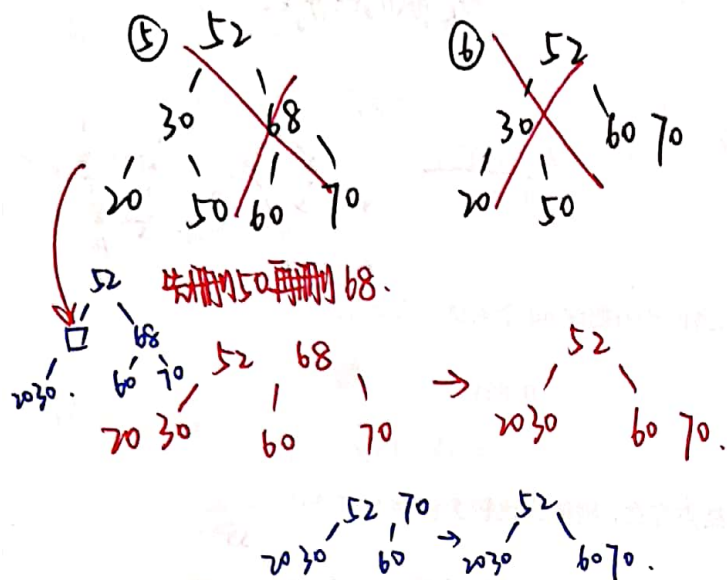 ⑤ 52
30 68
20 50 60 70
⑥ 52
30 60 70
20 50
先删50再删68.
52
68
20 30. 60 70
52 68
20 30 60 70
→
52
20 30 60 70.
52 70
20 30 60
→
52
20 30 60 70.